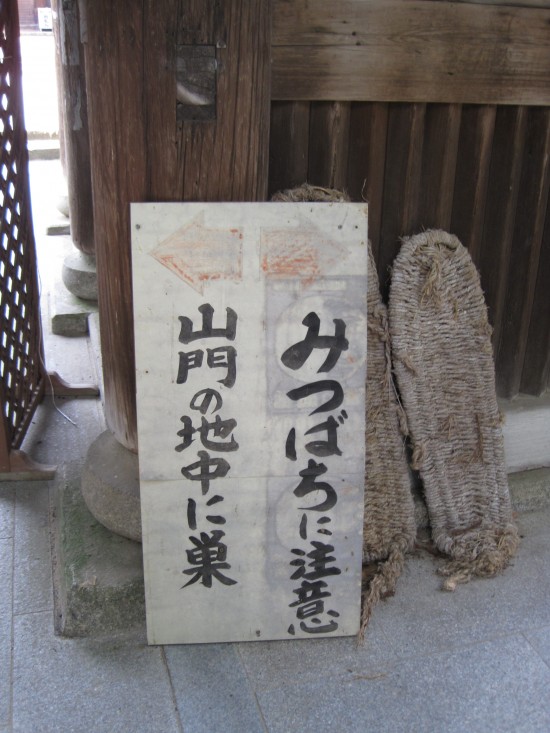 みつばちに注意
山門の地中に巣